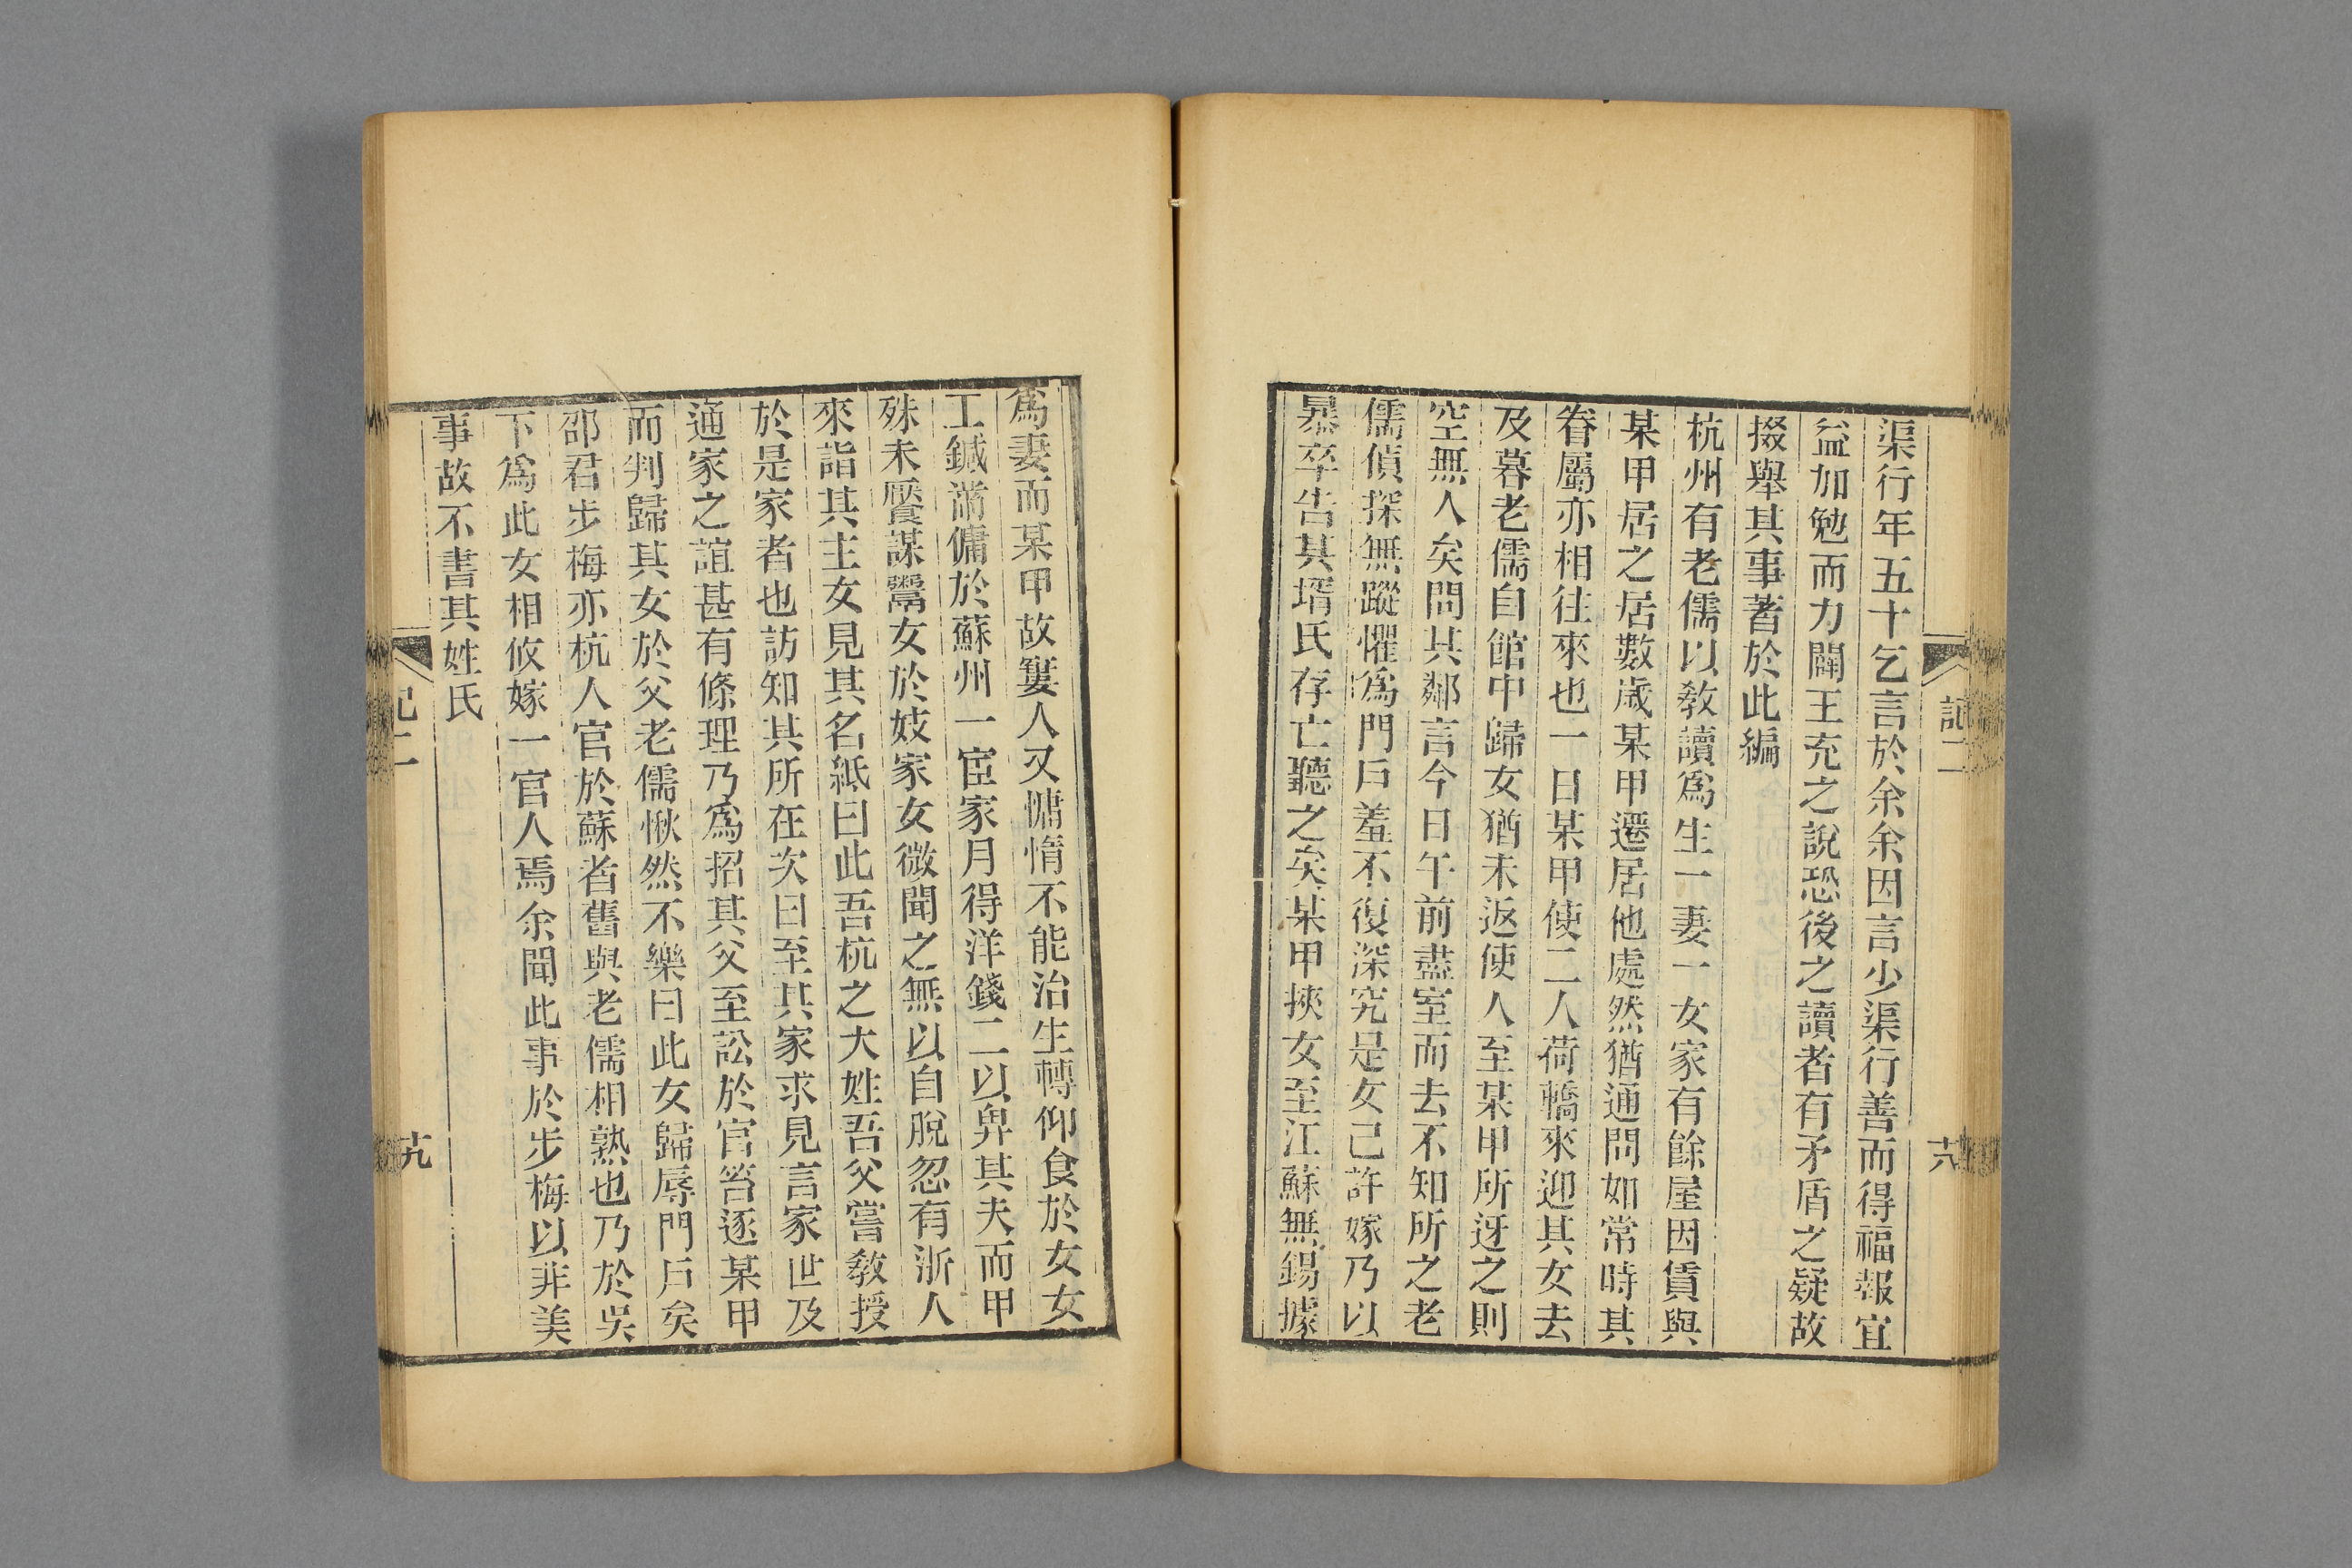 渠行年五十乞言於余余因言少渠行善而得福報宜
益加勉而力闢王充之說恐後之讀者有矛盾之疑故
掇舉其事著於此編
杭州有老儒以教讀為生一妻一女家有餘屋因賃與
某甲居之居數歲某甲遷居他處然猶通問如常時其
眷屬亦相往來也一日某甲使二人荷轎來迎其女去
及暮老儒自館中歸女猶未返使人至某甲所迓之則
空無人矣問其鄰言今日午前盡室而去不知所之老
儒偵探無蹤懼為門戶羞不復深究是女已許嫁乃以
暴卒告其壻氏存亡聽之矣某甲挾女至江蘇無錫據
記二
十八
為妻而某甲故窶人又慵惰不能治生轉仰食於女女
工鍼黹傭於蘇州一宦家月得洋錢二以畀其夫而甲
殊未饜謀鬻女於妓家女微聞之無以自脫忽有浙人
來詣其主女見其名紙曰此吾杭之大姓吾父嘗教授
於是家者也訪知其所在次日至其家求見言家世及
通家之誼甚有條理乃為招其父至訟於官笞逐某甲
而判歸其女於父老儒愀然不樂曰此女歸辱門戶矣
邵君步梅亦杭人官於蘇者舊與老儒相熟也乃於吳
下為此女相攸嫁一官人焉余聞此事於步梅以非美
事故不書其姓氏
記二
十九